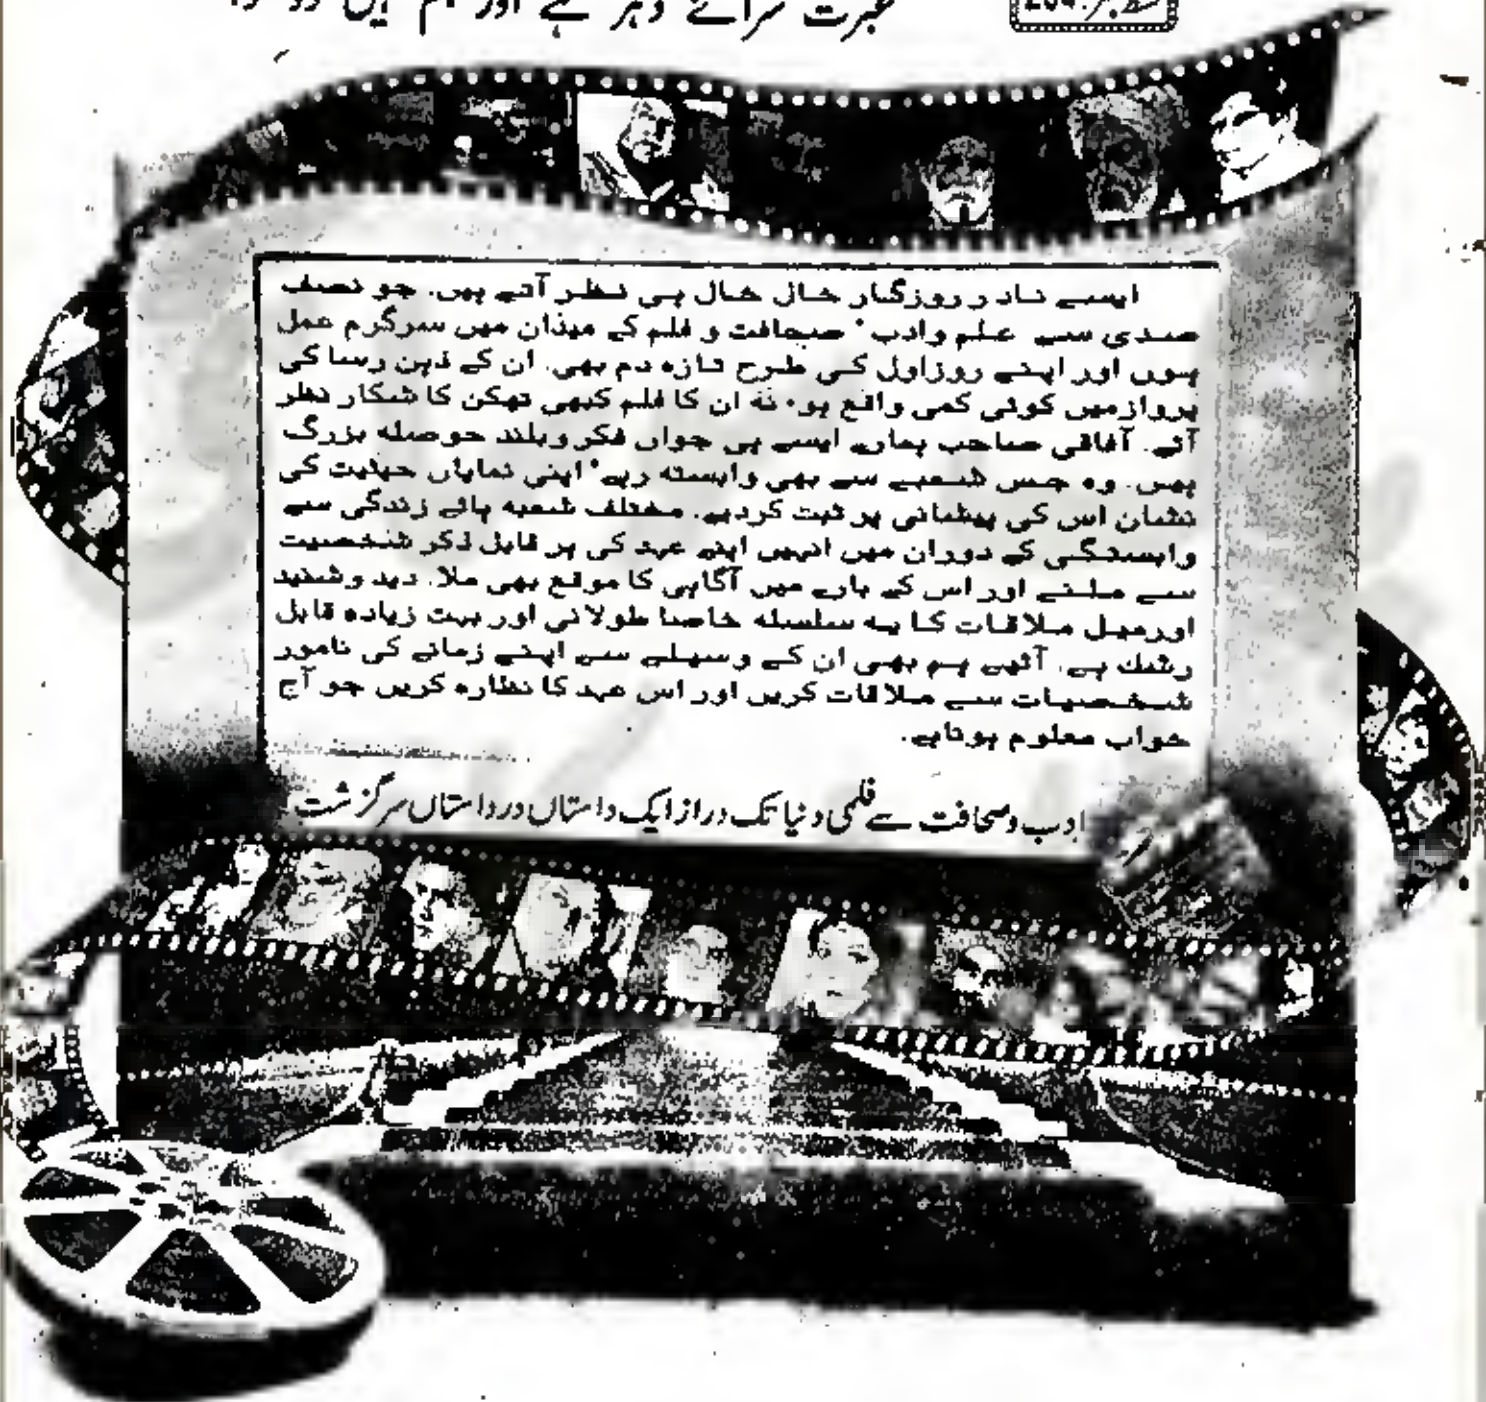 عبرت سرائے دہر ہے اور ہم ہیں
قسط نمبر: 204
ایسے نادر روزگار خال خال ہی نظر آتے ہیں۔ جو نصف
صدی سے علم وادب٬ صحافت و فلم کے میدان میں سرگرم عمل
ہوں اور اپنے روزاول کی طرح تازہ دم بھی۔ ان کے ذہن رسا کی
پرواز میں کوئی کمی واقع ہو٬ نہ ان کا قلم کبھی تھکن کا شکار نظر
آئے۔ آفاقی صاحب ہمارے ایسے ہی جواں فکر وبلند حوصلہ بزرگ
ہیں۔ وہ جس شعبے سے بھی وابستہ رہے٬ اپنی نمایاں حیثیت کی
نشان اس کی پیشانی پر ثبت کردیے۔ مختلف شعبہ ہائے زندگی سے
وابستگی کے دوران میں انہیں اپنے عہد کی ہر قابل ذکر شخصیت
سے ملنے اور اس کے بارے میں آگاہی کا موقع بھی ملا۔ دید وشنید
اورمیل ملاقات کا یہ سلسلہ خاصا طولانی اور بہت زیادہ قابل
رشک ہے۔ آئیے ہم بھی ان کے وسیلے سے اپنے زمانے کی نامور
شخصیات سے ملاقات کریں اور اس عہد کا نظارہ کریں جو آج
خواب معلوم ہوتاہے۔
ادب وصحافت سے فلمی دنیا تک دراز ایک داستاں در داستاں سرگزشت